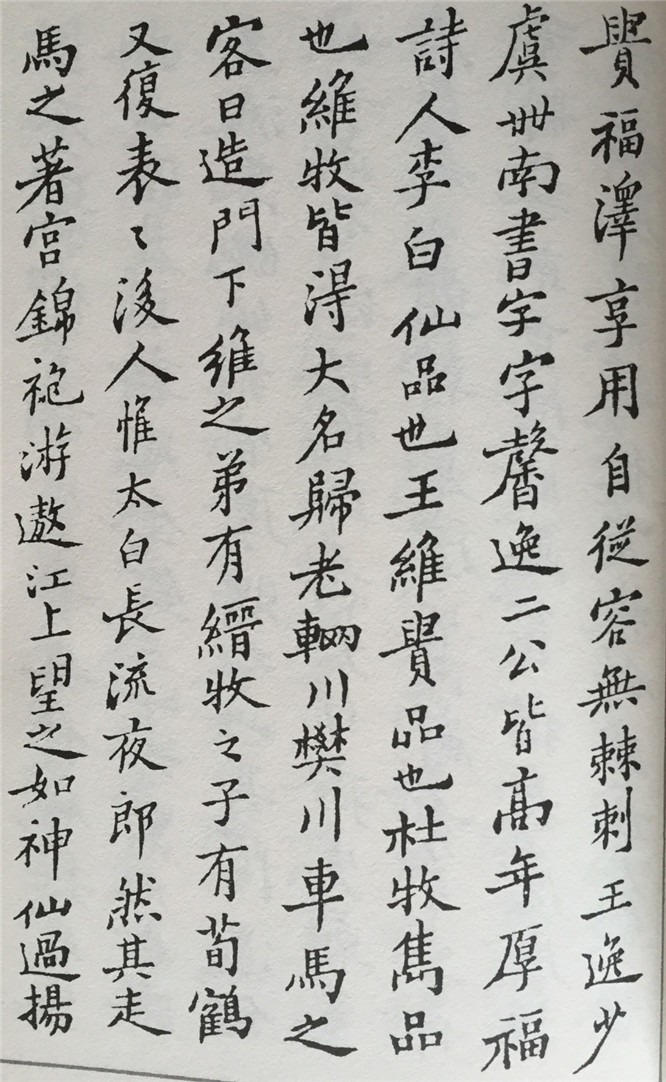 貴福澤享用自從容無棘刺王逸少
虞世南書字字馨逸二公皆高年厚福
詩人李白仙品也王維貴品也杜牧雋品
也維牧皆得大名歸老輞川樊川車馬之
客日造門下維之弟有縉牧之子有荀鶴
又復表〻後人惟太白長流夜郎然其走
馬之著宮錦袍游遨江上望之如神仙過揚